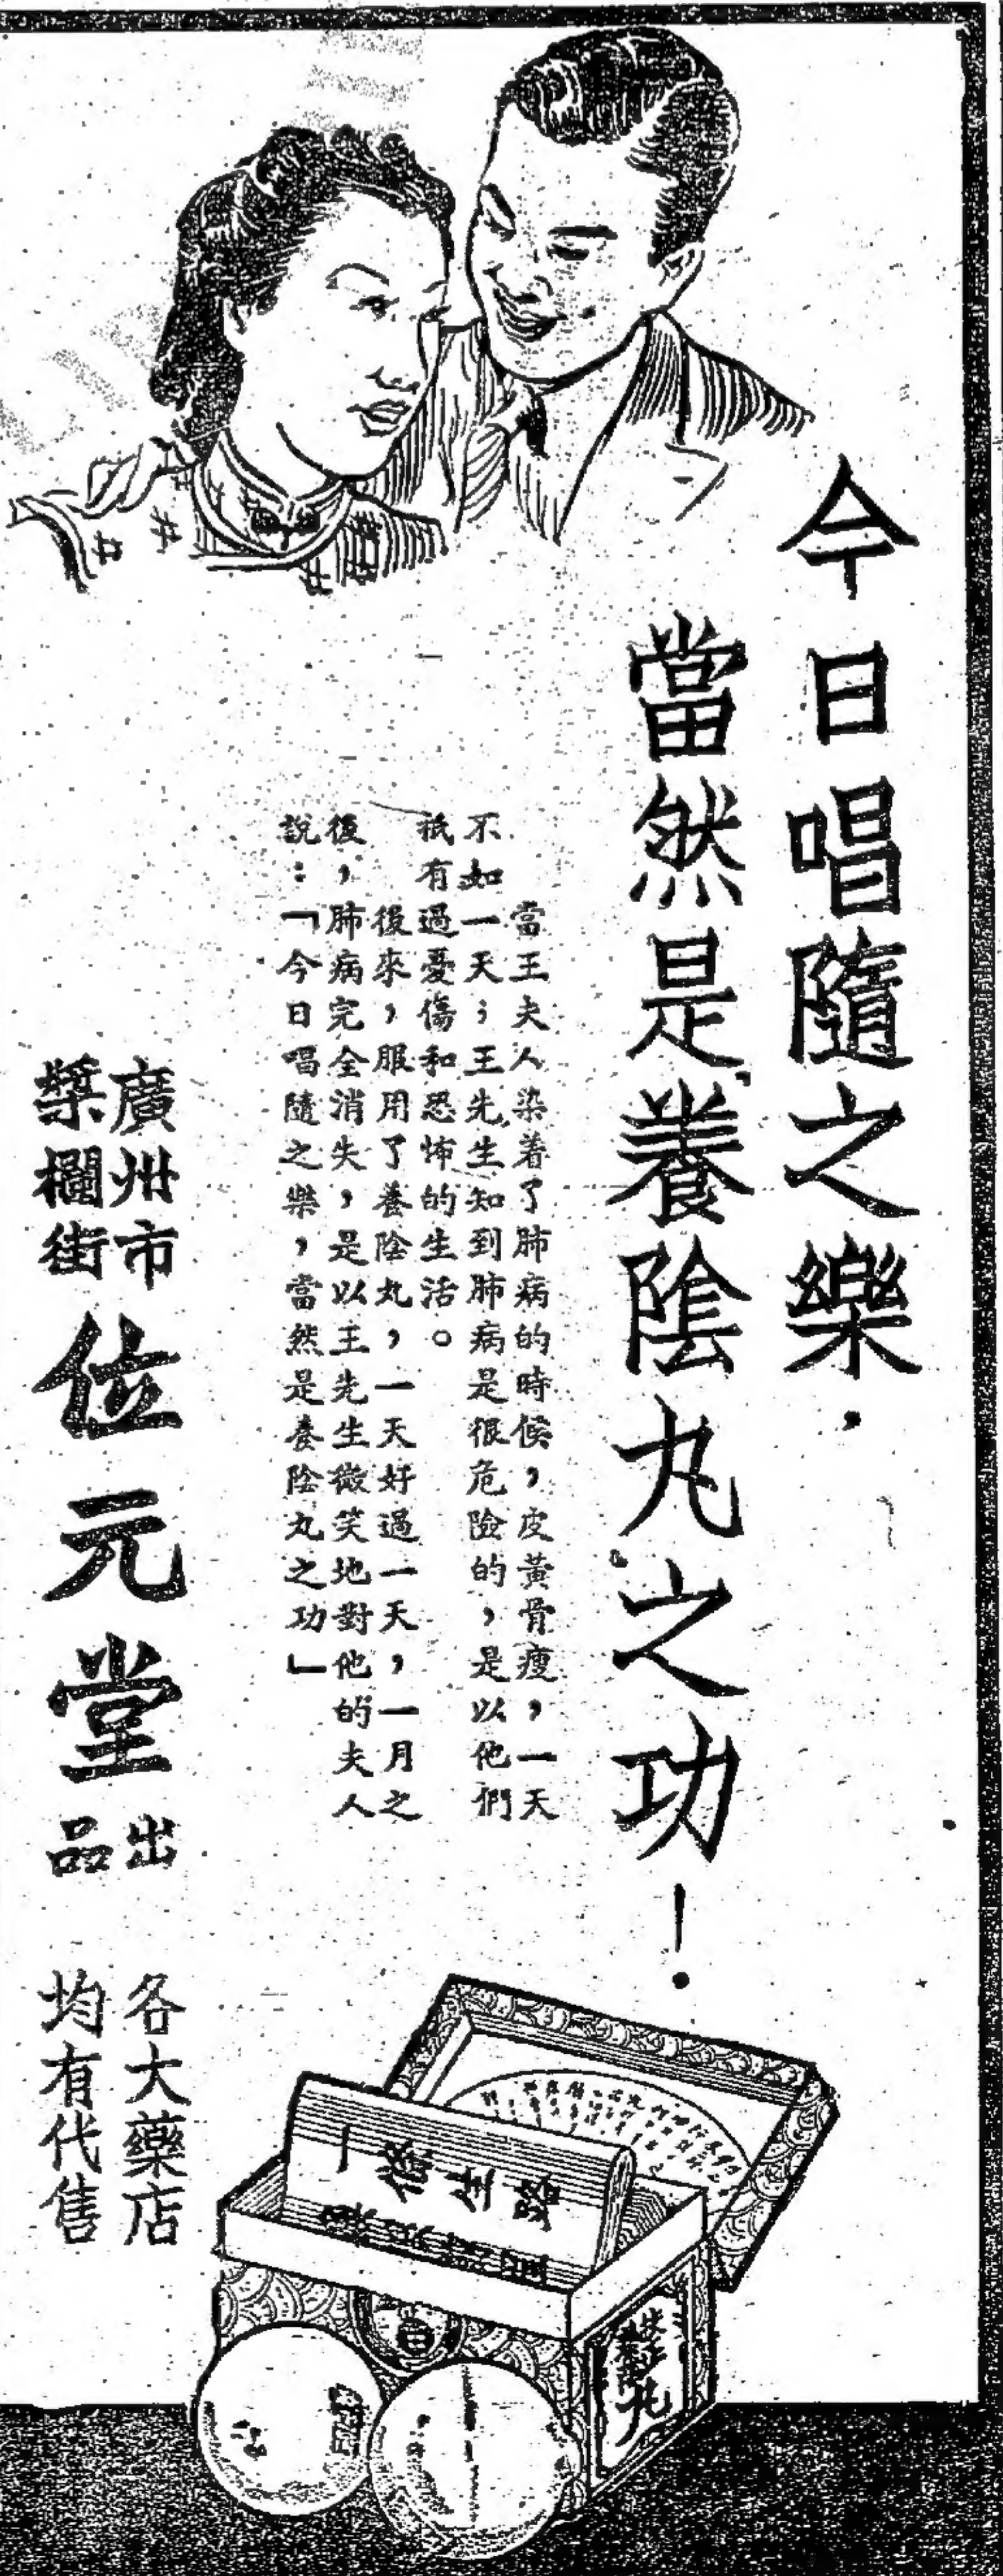 今日唱隨之樂．
當然是養陰丸之功！
當王夫人染着了肺病的時候，皮黃骨瘦，一天
不如一天；王先生知到肺病是很危險的，是以他們
祇有過憂傷和恐怖的生活。
後來，服用了養陰丸，一天好過一天，一月之
後，肺病完全消失，是以王先生微笑地對他的夫人
說：「今日唱隨之樂，當然是養陰丸之功」
廣州市
槳欄街
位元堂
出品
各大藥店
均有代售